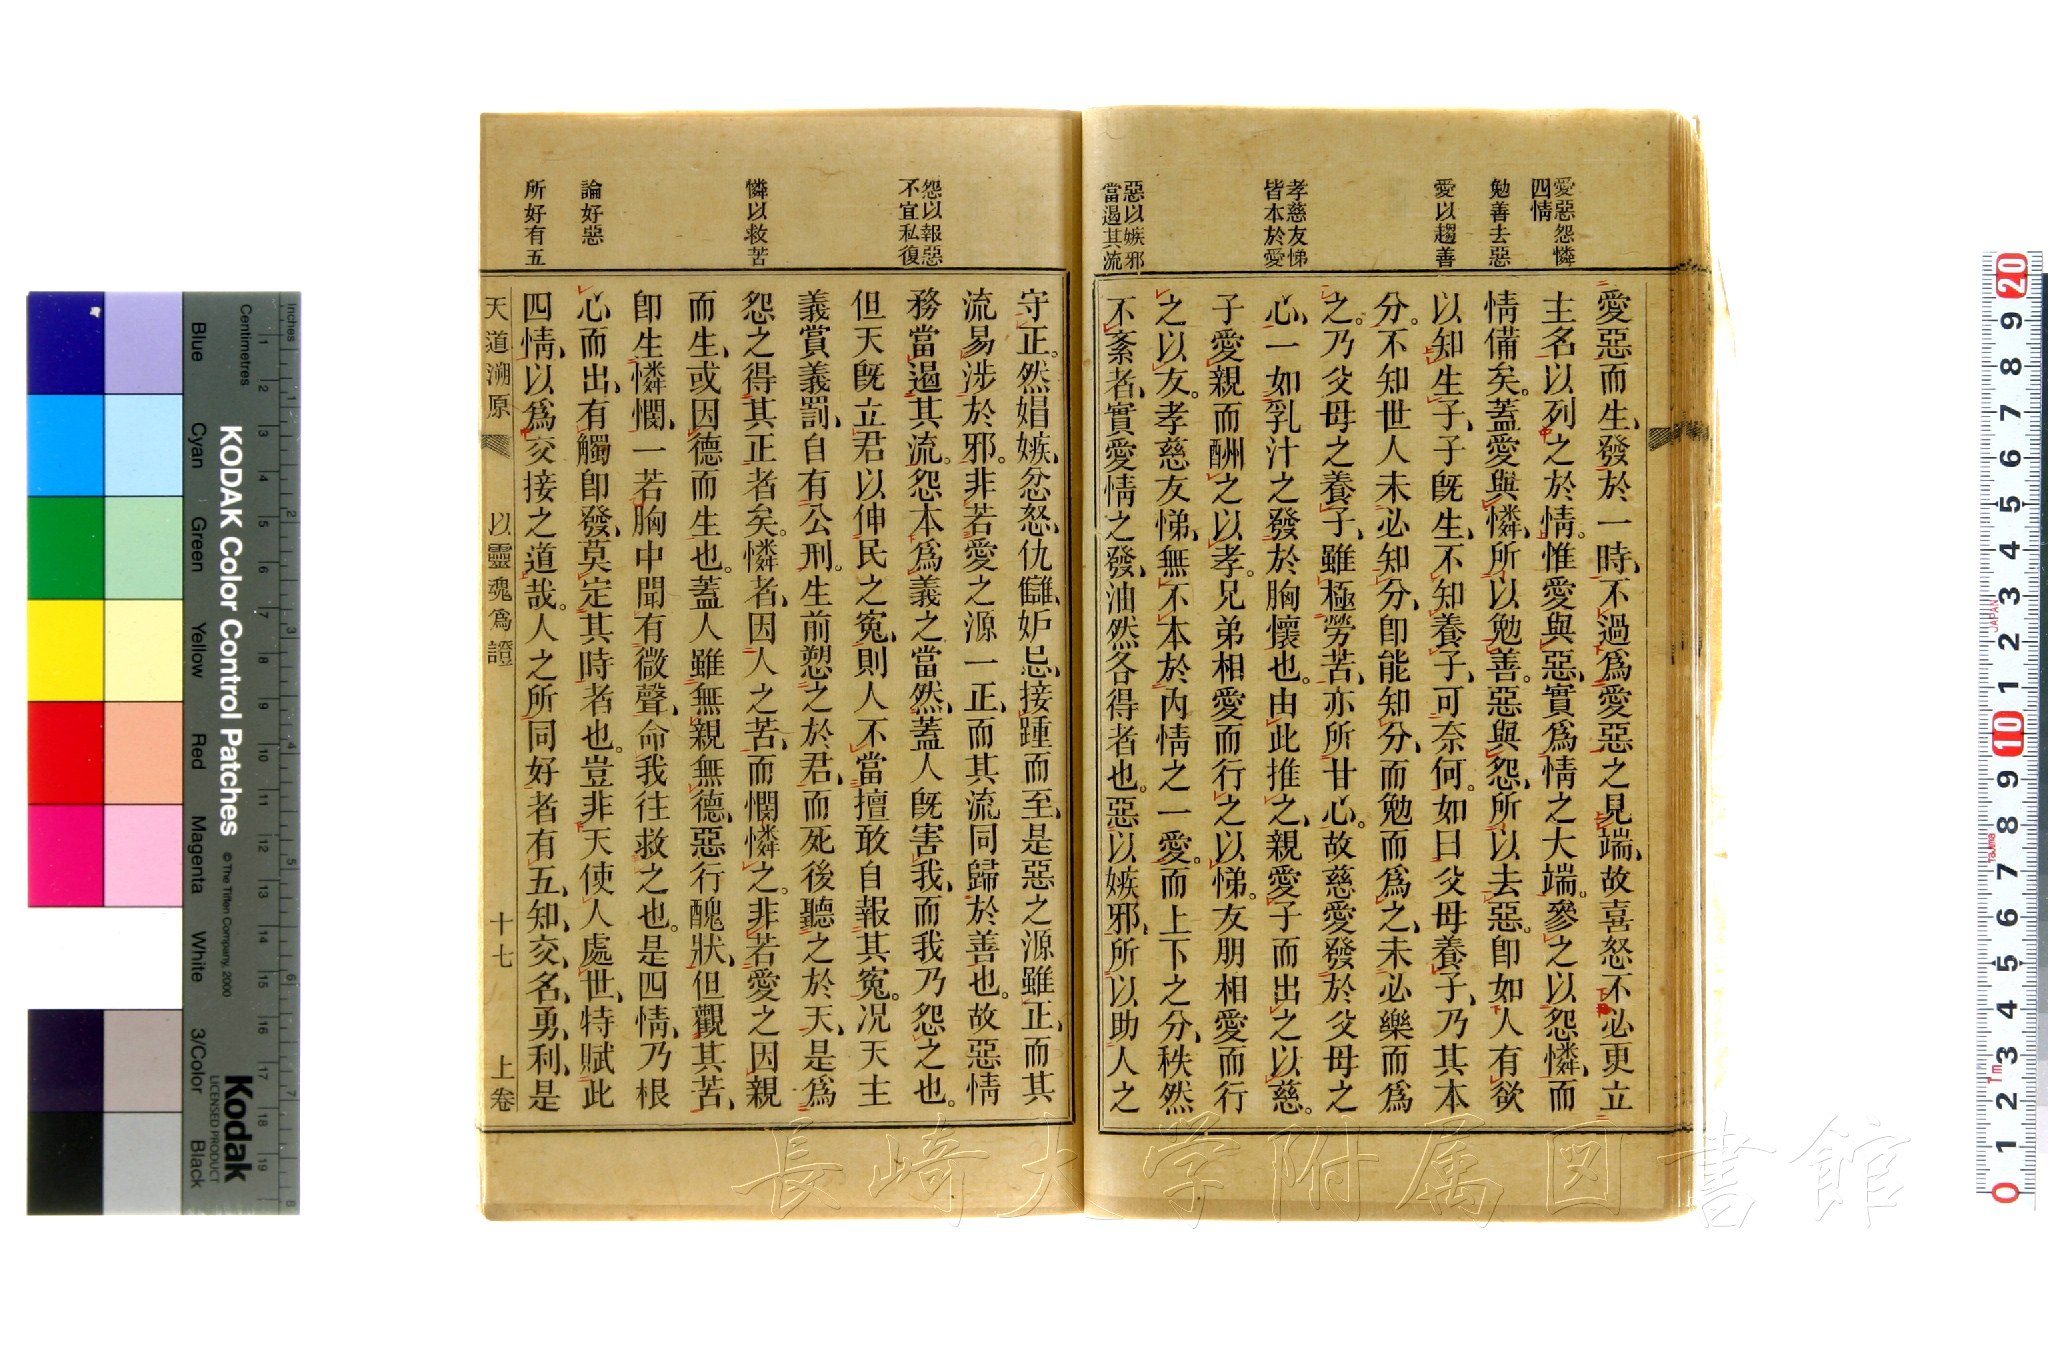 愛惡怨憐
四情
勉善去惡
愛以趨善
孝慈友悌
皆本於愛
惡以嫉邪
當遏其流
愛惡而生、發於一時、不過爲愛惡之見端、故喜怒不必更立
主名以列之於情。惟愛與惡、實爲情之大端。參之以怨憐、而
情備矣。蓋愛與憐、所以勉善。惡與怨、所以去惡。卽如人有欲
以知生子、子旣生、不知養子、可奈何。如曰父母養子、乃其本
分。不知世人未必知分、卽能知分、而勉而爲之、未必樂而爲
之。乃父母之養子、雖極勞苦、亦所甘心。故慈愛發於父母之
心、一如乳汁之發於胸懷也。由此推之、親愛子而出之以慈。
子愛親而酬之以孝。兄弟相愛而行之以悌。友朋相愛而行
之以友。孝慈友悌、無不本於內情之一愛。而上下之分、秩然
不紊者、實愛情之發、油然各得者也。惡以嫉邪、所以助人之
怨以報惡
不宜私復
憐以救苦
論好惡
所好有五
守正。然娼嫉、忿怒、仇讎、妒忌、接踵而至、是惡之源雖正、而其
流易涉於邪。非若愛之源一正、而其流同歸於善也。故惡情
務當遏其流。怨本爲義之當然、蓋人旣害我、而我乃怨之也。
但天旣立君以伸民之寃、則人不當擅敢自報其寃。况天主
義賞義罰、自有公刑。生前愬之於君、而死後聽之於天、是爲
怨之得其正者矣。憐者、因人之苦、而憫憐之。非若愛之因親
而生、或因德而生也。蓋人雖無親無德、惡行醜狀、但觀其苦、
卽生憐憫、一若胸中聞有微聲、命我往救之也。是四情、乃根
心而出、有觸卽發、莫定其時者也。豈非天使人處世、特賦此
四情、以爲交接之道哉。人之所同好者有五、知、交、名、勇、利、是
天道溯原
以靈魂爲證
十七
上卷
KODAK Color Control Patches
© The Tiffen Company, 2000
Kodak
LICENSED PRODUCT
Inches
Centimetres
Blue
Cyan
Green
Yellow
Red
Magenta
White
3/Color
Black
長崎大学附属図書館